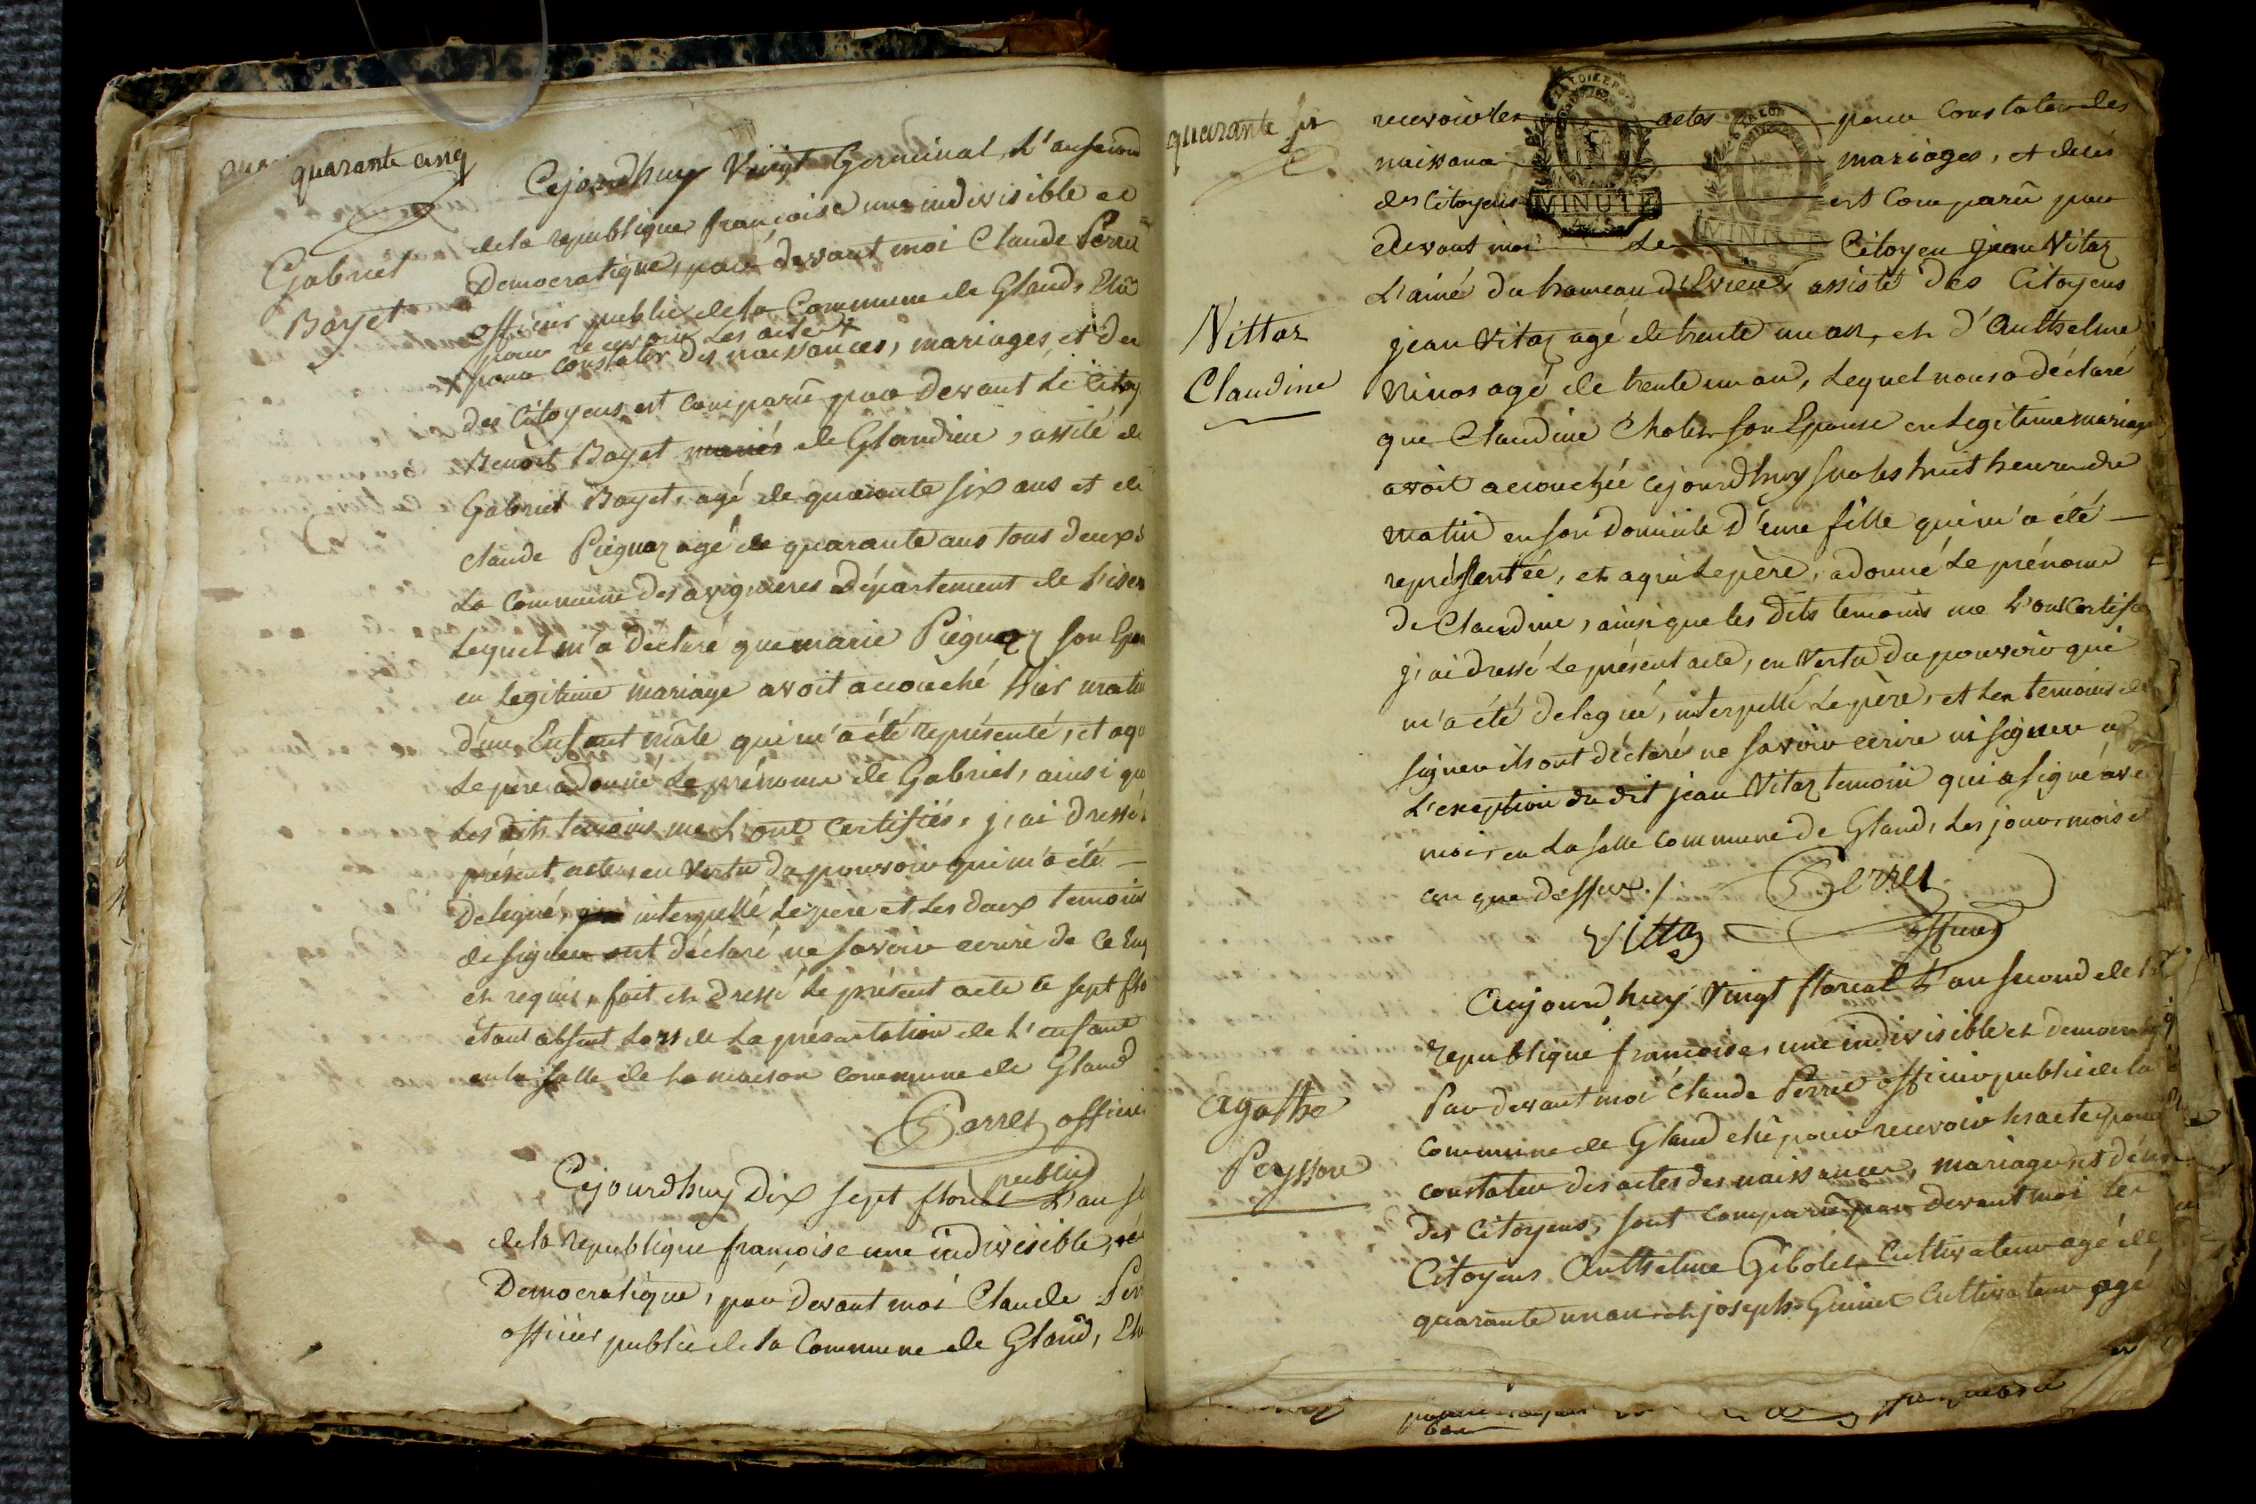 quarante cinq
Gabriel
Bayet
Cejourdhuy Vingt Germinal, L'an second
de la republique françoise une indivisible et
Democratique, par devant moi Claude Perret
officier public de la Commune de Gland, Elû
pour recevoir Les actes
pour constater des naissances, mariages, et de
des Citoyens est comparû par Devant Le Citoy
Benoit Bayet mariés de Glandieu, assité de
Gabriel Bayet, agé de quarante six ans et de
claude Piegnaz agé de quarante ans tous deux
La Commune des avignieres Département de L'iser
Lequel m'a déclaré que marie Piegnaz son Epou
en Legitime mariage avoit accouché hier matin
d'un Enfant mâle qui m'a été représenté, et aqu
Le pere a donné Le prénom de Gabriel, ainsi que
Les dits temoins me L'ont certifiés, j'ai dressé
présent acte, en vertu du pouvoir qui m'a été
Delegué, interpellé Le père et Les deux temoins
de signer ont déclaré ne savoir ecrire de ce Enq
et requis, fait et dressé Le présent acte le sept flo
étant absent Lors de La présentation de L'enfant
en la salle de La maison commune de Gland
Perret officier
public
Cejourdhuy Dix sept floreal L'an se
de la republique francoise une indivisible, et
Democratique, par devant moi Claude Perr
officier public de la Commune de Gland, Elu
quarante six
recevoir les actes pour Constater des
naissance mariages, et décès
des Citoyens est Comparû par
devant moi Le Citoyen jean Vitaz
L'ainé du hameau d'Evieu, assisté des Citoyens
MINUTE
MINUTE
Vittaz
Claudine
jean Vitaz agé de trente un an, et d'Anthelme
Ninos agé de trente un an, Lequel nous a déclaré
que Claudine Choler son Epouse en Legitime mariage
avoit accouchée cejourdhuy sur les huit heures du
matin en son Domicile D'une fille qui m'a été
représentée, et aqui Le père, a donné Le prénom
de Claudine, ainsi que les Dits temoins me L'ont certifies
j'ai dressé Le présent acte, en vertu du pouvoir qui
m'a été delegué, interpellé Le père, et Les temoins de
signer ils ont déclaré ne savoir ecrire ni signer a
L'exception du dit jean Vitaz temoin qui a signé avec
moi, en La salle commune de Gland, Les jour mois et
an que dessus./. Perret
Vittaz officier
agathe
Peysson
Aujourdhuy Vingt floreal L'an second de la
republique francoise, une indivisible et democratiq
Par devant moi Claude Perret officier public de la
commune de Gland elû pour recevoir les actes pour
constater des actes des naissances, mariages et décès
des Citoyens, sont comparu par devant moi les
Citoyens Anthelme Gibolet Cultivateur agé de
quarante un an et joseph Guinet Cultivateur agé